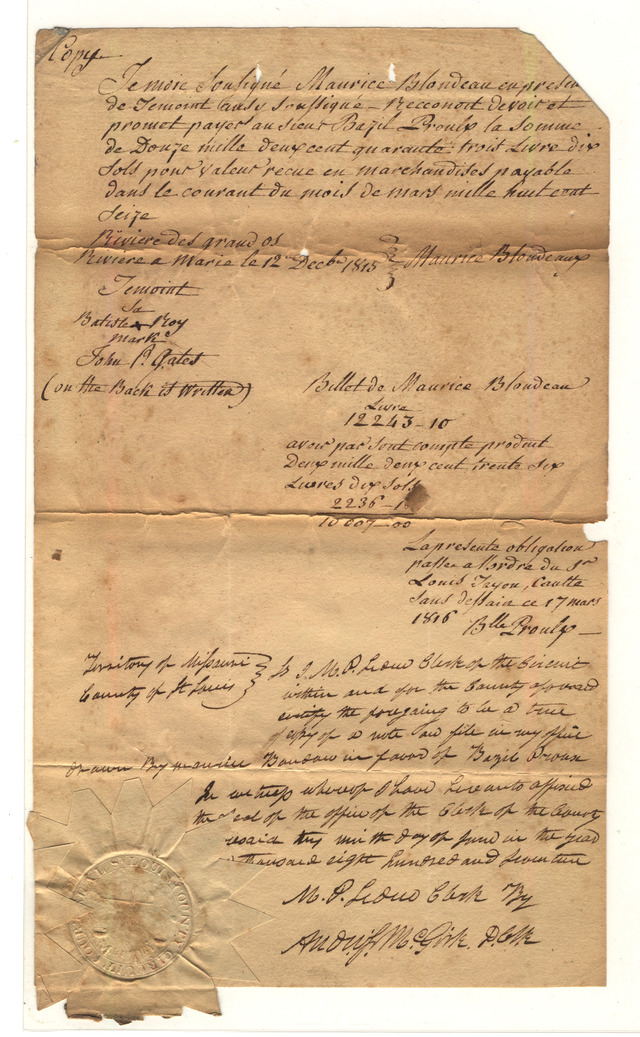 Copy
Je moie Sousigné Maurice Blondeau en presen
de Temoint Causy Soussigné - Recconoit devoir et
promot payer au sieur Bazil Proulx la somme
de Douze mille deux cent quarante troit Livre dix
Sols pour valeur recue en marchandises payable
dans le courant du mois de mars mille huit cent
Seize
Riviere des grand os
Riviere a Marie le 12 Decbr 1815 } Maurice Blondeaux
Temoint
Sa
Batiste x Roy
mark
John P. Gates
(on the Back is Written)
Billet de Maurice Blondeau
Livre
12243-10
avoir par sont compte produit
Deux mille deux cent trente Six
Livres dix Sols
2236-1
10007-00
La presente obligation
passer a l'ordre du Sr
Louis Tayon,
Sans de ce 17 mars
1816
Blle Proulx
Territory of Missouri
County of St Louis } I M. P. Leduc Clerk of the Circuit
within and for the County aforesaid
certify the foregoing to be a true
Copy of a note on file in my office
drawn By maurice in favor of Bazil Proux
In witness whereof I have hereunto affixed
the seal of the office of the Clerk of the Court
this ninth day of June in the year
thousand eight hundred and seventeen
M. P. Leduc Clerk By
McGirk D. Clk
ST LOUIS COUNTY CIRCUIT COURT
SEAL